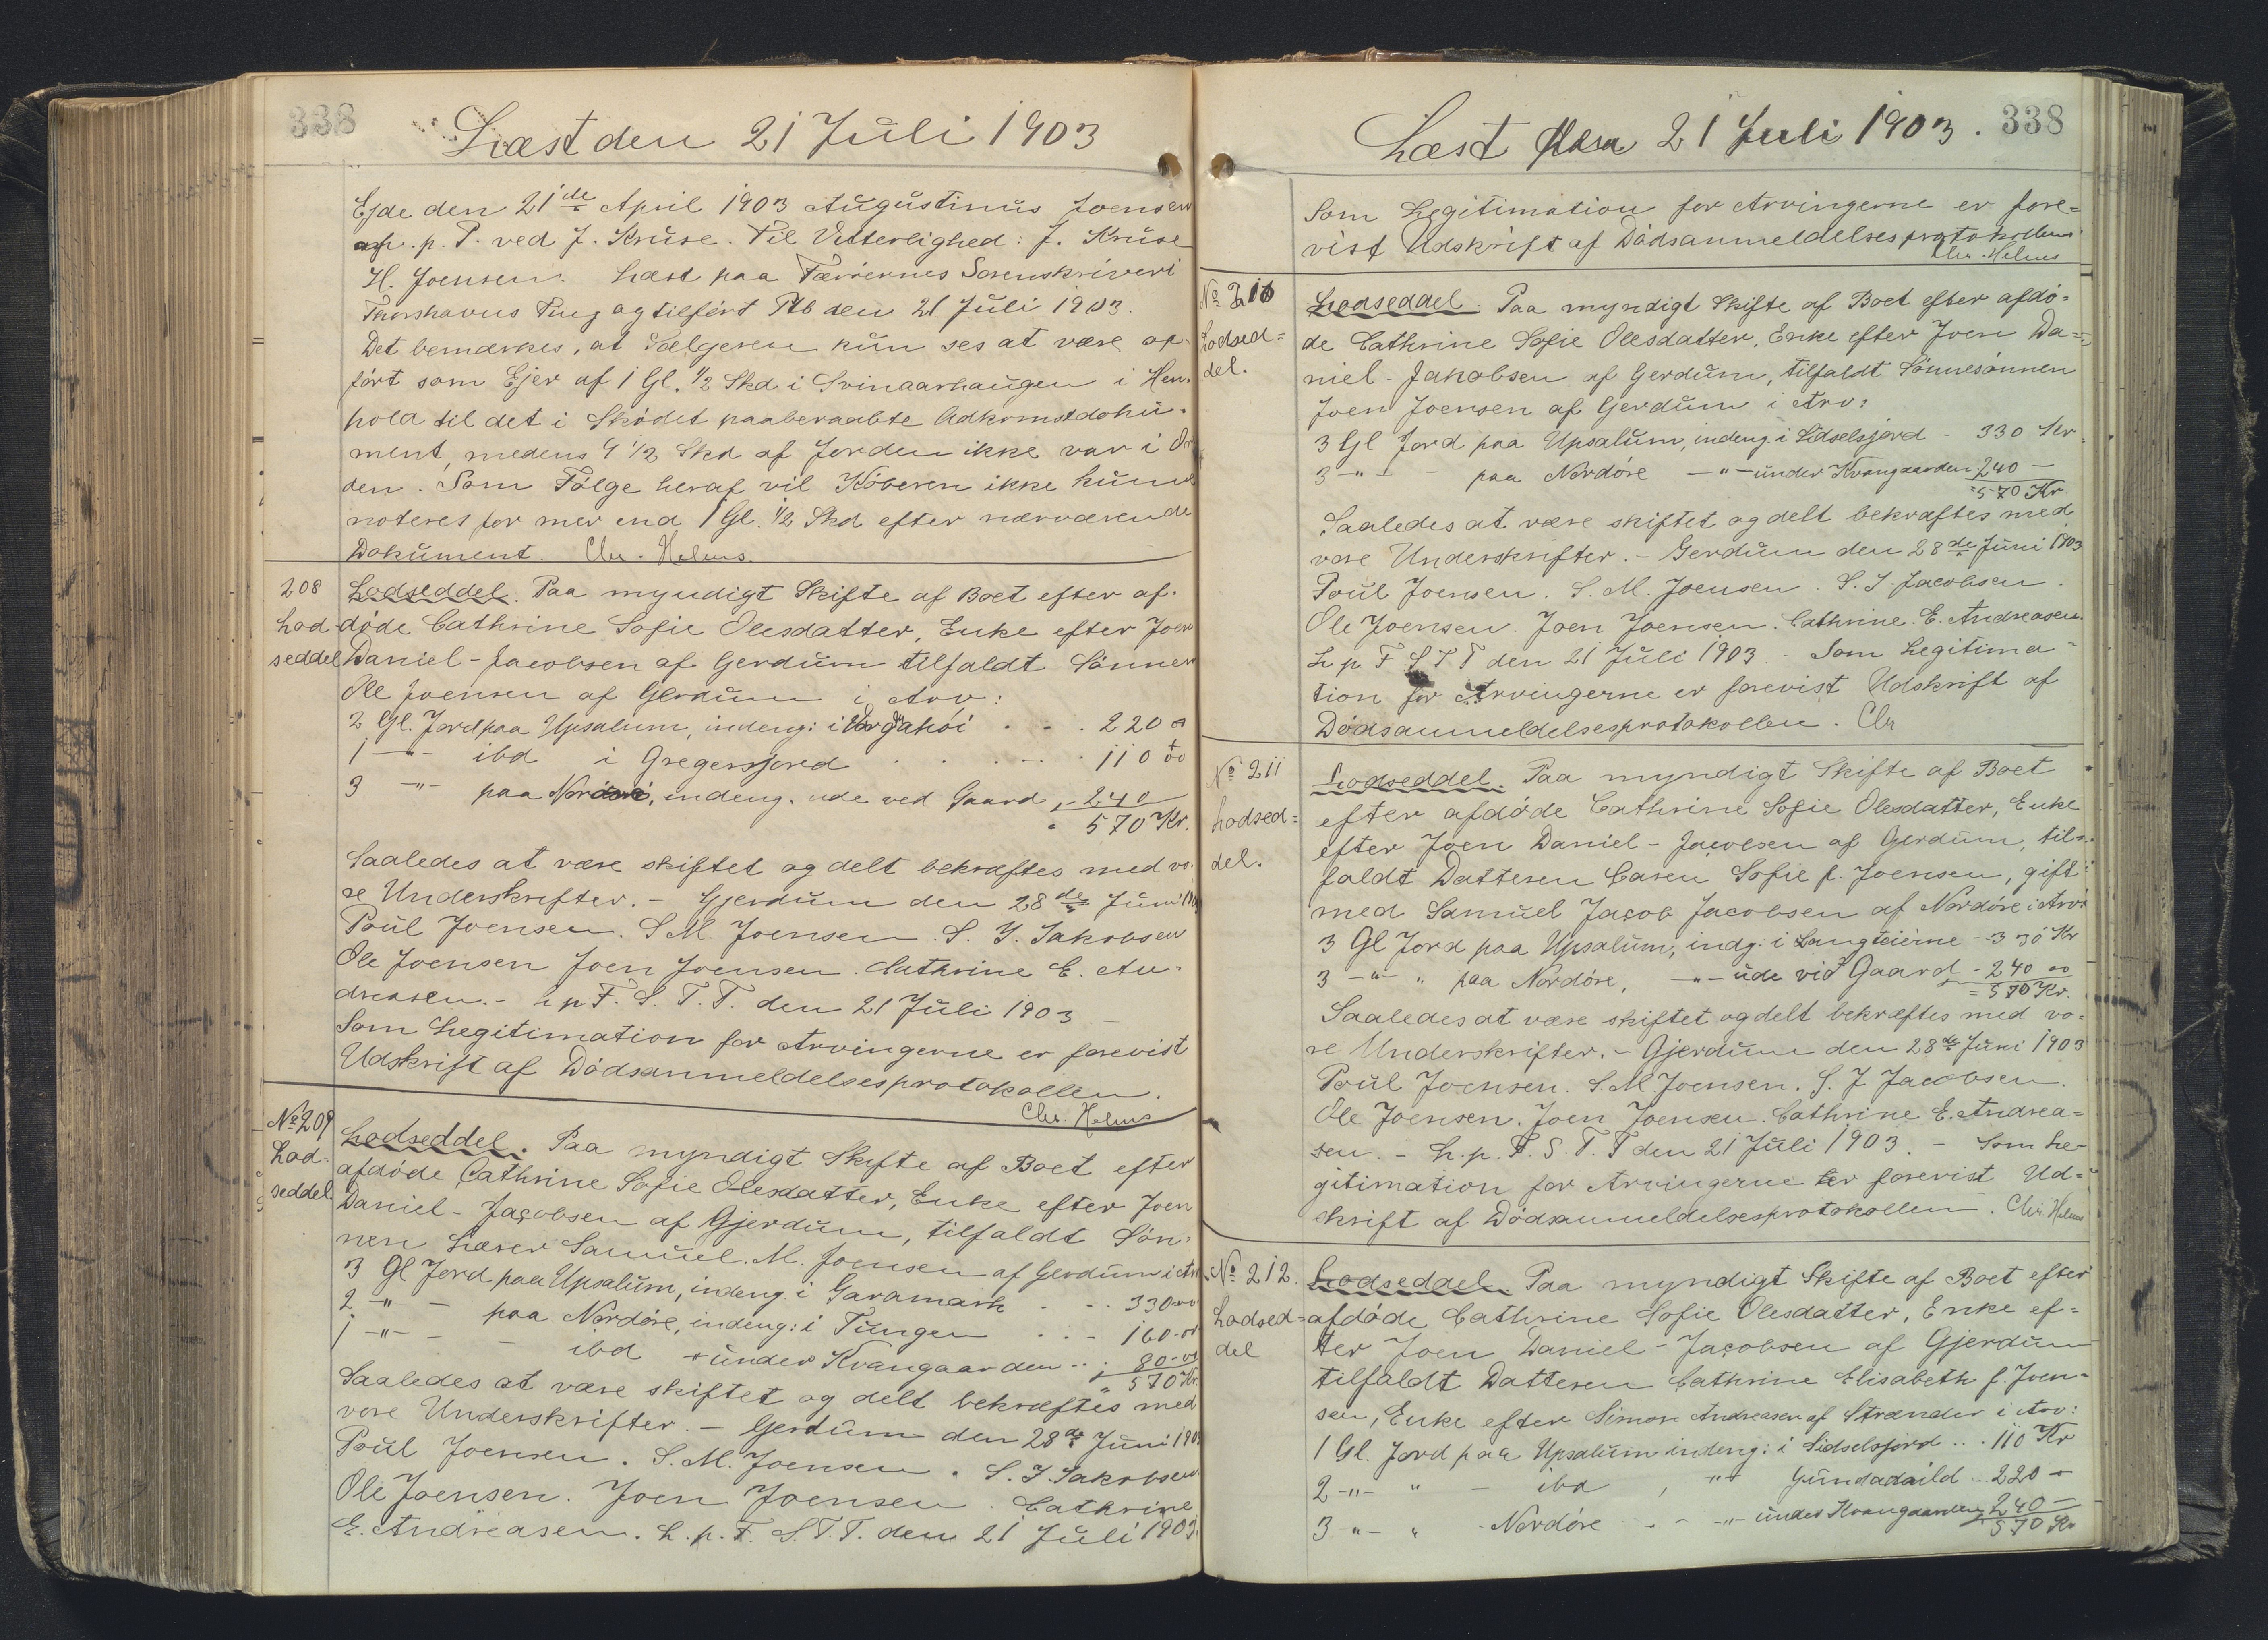 338
Læst den 21 Juli 1903
Ejde den 21de April 1903 Augustinus Joensen
p. T. ved J. Kruse. Til Vitterlighed: J. Kruse
H. Joensen. Læst paa Færøernes Sorenskriveri
Thorshavns Ting og tilført Ptb den 21 Juli 1903.
Det bemærkes, at Sælgeren kun ses at være op-
ført som Ejer af 1 Gl. 1/2 Skd. i Svinaarhaugen i Hen-
hold til det i Skødet paaberaabte Adkomstdoku-
ment, medens 4 1/2 Skd af Jorden ikke var i Or
den. Som Følge heraf vil Køberen ikke kunne
noteres for mer end 1 Gl. 1/2 Skd efter nærværende
Dokument. Chr. Helms.
208
Lod-
seddel
Lodseddel. Paa myndigt Skifte af Boet efter af-
døde Cathrine Sofie Olesdatter, Enke efter Joen
Daniel-Jacobsen af Gerdum tilfaldt Sønnen
Ole Joensen af Gerdum i Arv:
2 Gl. Jord paa Upsalum, indeng: i . . . 220
1 -"- ibd i Gregersjord . . . . 110 00
3 -"- paa Nordøre, indeng. ude ved Gaard - 240
570 Kr.
Saaledes at være skiftet og delt bekræftes med vo-
re Underskrifter. - Gjerdum den 28de Juni
Poul Joensen. S M. Joensen. S. J. Jakobsen
Ole Joensen Joen Joensen. Cathrine E. An-
dreasen. - L p F. S. T. T. den 21 Juli 1903 -
Som Legitimation for Arvingerne er forevist
Udskrift af Dødsanmeldelsesprotokollen.
Chr. Helms
No 209
Lod-
seddel
Lodseddel. Paa myndigt Skifte af Boet efter
afdøde Cathrine Sofie Olesdatter, Enke efter Joen
Daniel-Jacobsen af Gjerdum, tilfaldt Søn-
nen Lærer Samuel. M. Joensen af Gerdum i Arv
3 Gl Jord paa Upsalum, indeng. i Garamark . . . 330 00
2 -"- - paa Nordøre, indeng: i Tungen . . - 160-00
1 -"- - - ibd - under Kvangaarden . . . 80-00
570 Kr
Saaledes at være skiftet og delt bekræftes med
vore Underskrifter. - Gerdum den 28de Juni 1903
Poul Joensen. S. M. Joensen. S. J. Jakobsen
Ole Joensen. Joen Joensen. Cathrine
E. Andreasen. L. p. F. S. T. T. den 21 Juli 1903.
Læst den 21 Juli 1903. 338
Som Legitimation for Arvingerne er fore=
vist Udskrift af Dødsanmeldelsesprotokollen
Chr. Helms
No 210
Lodsed=
del.
Lodseddel. Paa myndigt Skifte af Boet efter afdø=
de Cathrine Sofie Olesdatter, Enke efter Joen Da=
niel-Jakobsen af Gerdum, tilfaldt Sønnesønnen
Joen Joensen af Gerdum i Arv:
3 Gl Jord paa Upsalum, indeng i Sidselsjord - 330 Kr
3 -"- - paa Nordøre -"- under Kvangaarden 240 -
=570 Kr
Saaledes at være skiftet og delt bekræftes med
vore Underskrifter. - Gerdum den 28de Juni 1903
Poul Joensen. S. M. Joensen. S. J. Jacobsen.
Ole Joensen. Joen Joensen. Cathrine. E. Andreasen.
L p F S T T den 21 Juli 1903. - Som Legitima-
tion for Arvingerne er forevist Udskrift af
Dødsanmeldelsesprotokollen. Chr
No 211
Lodsed=
del.
Lodseddel. Paa myndigt Skifte af Boet
efter afdøde Cathrine Sofie Olesdatter, Enke
efter Joen Daniel-Jacobsen af Gerdum, til=
faldt Datteren Caren Sofie f. Joensen, gift
med Samuel Jacob Jacobsen af Nordøre i Arv:
3 Gl Jord paa Upsalum, indg. i Langteierne - 330 Kr
3 -"- " paa Nordøre, -"- ude vid Gaard - 240 00
=570 Kr.
Saaledes at være skiftet og delt bekræftes med vo=
re Underskrifter. - Gjerdum den 28de Juni 1903
Poul Joensen. S. M Joensen. S. J Jacobsen.
Ole Joensen. Joen Joensen. Cathrine E. Andrea=
sen. - L. p. F. S. T. T den 21 Juli 1903. - Som Le-
gitimation for Arvingerne er forevist Ud=
skrift af Dødsanmeldelsesprotokollen. Chr Helms
No 212.
Lodsed=
del
Lodseddel. Paa myndigt Skifte af Boet efter
afdøde Cathrine Sofie Olesdatter, Enke ef=
ter Joen Daniel-Jacobsen af Gjerdum
tilfaldt Datteren Cathrine Elisabeth f. Joen-
sen, Enke efter Simon Andreasen af Strænder i Arv:
1 Gl. Jord paa Upsalum indeng: i Sidselsjord . . . 110 Kr
2 -"- " - ibd , -"- . . 220 -
3 "- " - Nordøre - - -"- under Kvangaarden 240 -
570 Kr